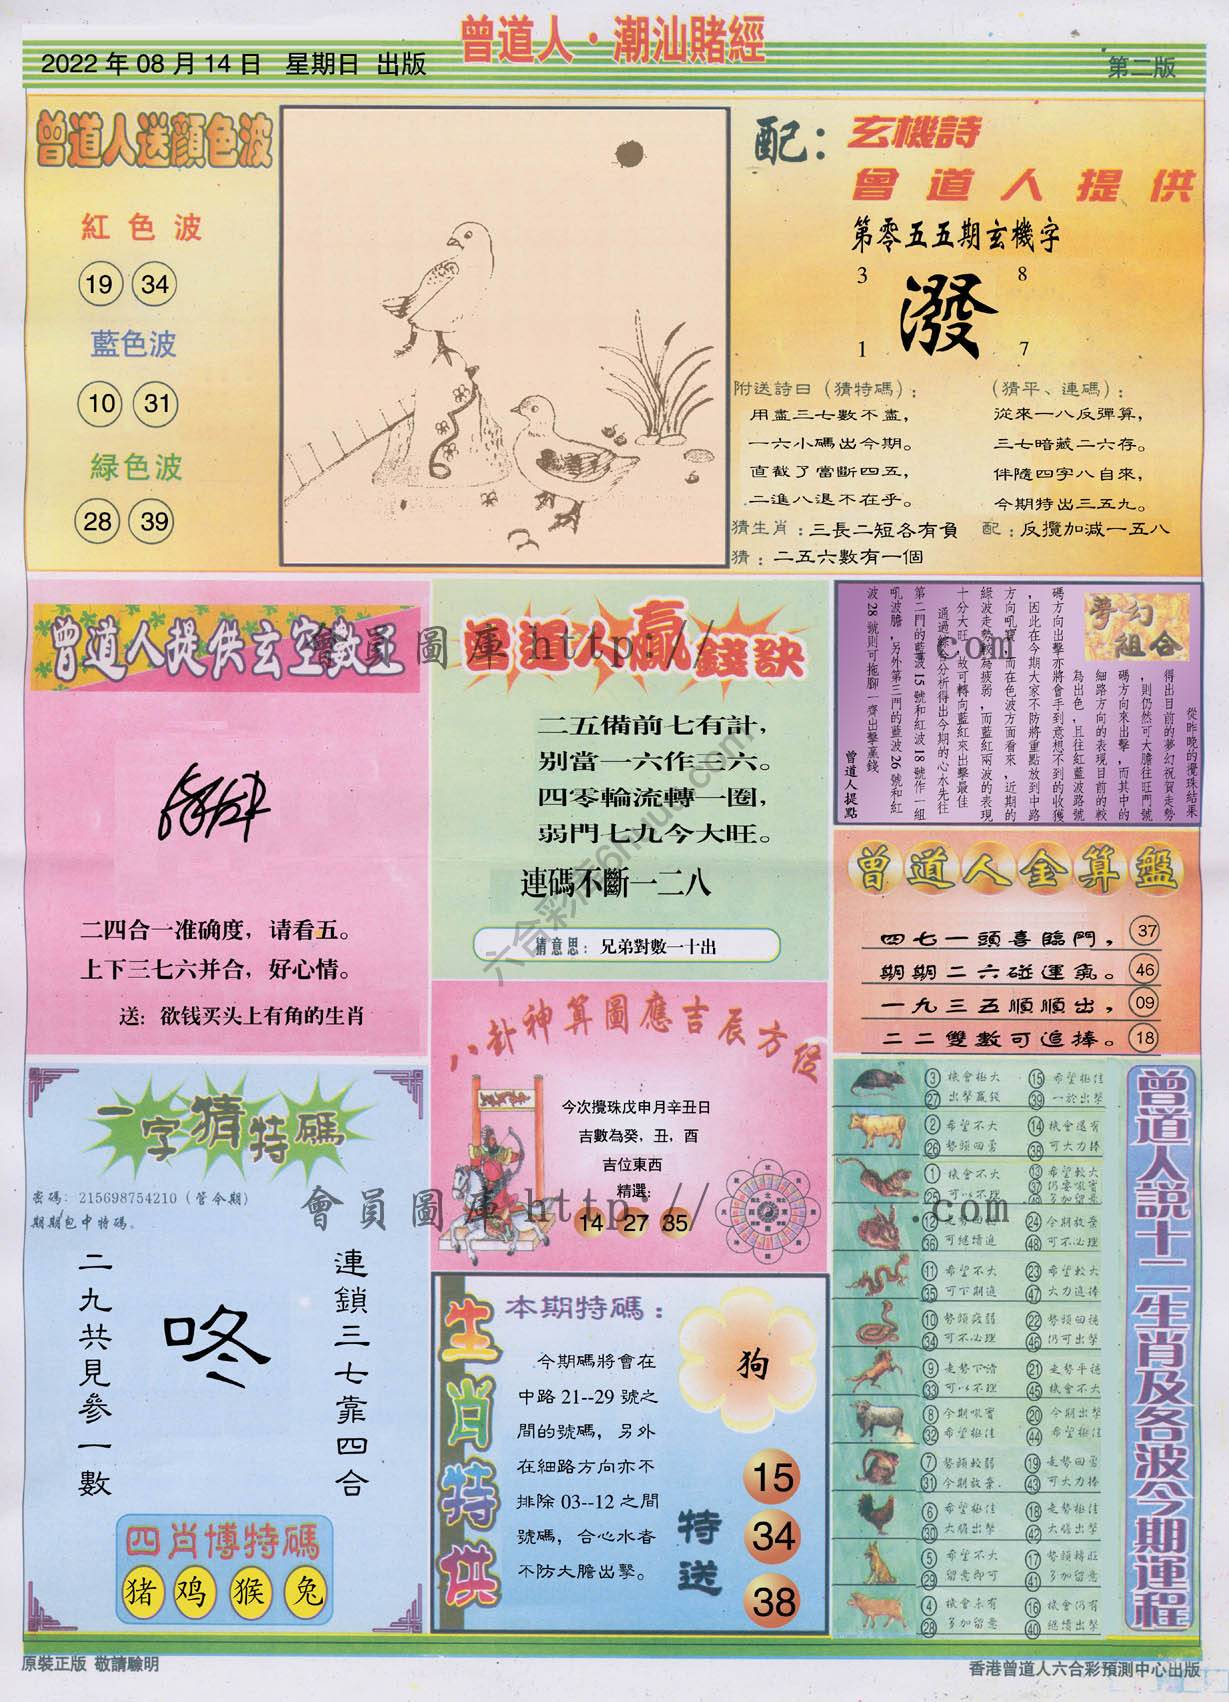 曾道人·潮汕賭經
2022 年 08 月 14 日 星期日 出版
第二版
曾道人送顏色波
紅色波
19 34
藍色波
10 31
緑色波
28 39
配：玄機詩
曾道人提供
第零五五期玄機字
3 8
潑
1 7
附送詩日（猜特碼）：
用盡三七數不盡，
一六小碼出今期。
直截了當斷四五，
二進八退不在乎。
（猜平、連碼）：
從來一八反彈算，
三七暗藏二六存。
伴隨四字八自來，
今期特出三五九。
猜生肖：三長二短各有負
配：反攬加減一五八
猜：二五六數有一個
曾道人提供玄空數王
二四合一准确度，请看五。
上下三七六并合，好心情。
送：欲钱买头上有角的生肖
曾道人贏錢訣
二五備前七有計，
别當一六作三六。
四零輪流轉一圈，
弱門七九今大旺。
連碼不斷一二八
猜意思：兄弟對數一十出
夢幻
組合
從昨晚的攪珠結果
得出目前的夢幻祝賀走勢
，則仍然可大膽往旺門號
碼方向來出擊，而其中的
細路方向的表現目前的較
為出色，且往紅藍波路號
碼方向出擊亦將會手到意想不到的收獲
，因此在今期大家不防將重點放到中路
方向吼寶，而在色波方面看來，近期的
綠波走勢較為疲弱，而藍紅兩波的表現
十分大旺，故可轉向藍紅來出擊最佳
通過綜合分析得出今期的心水先往
第二門的藍波 15 號和紅波 18 號作一組
吼波膽，另外第三門的藍波 26 號和紅
波 28 號則可拖腳一齊出擊贏錢
曾道人提點
曾道人金算盤
四七一頭喜臨門， 37
期期二六碰運氣。 46
一九三五順順出， 09
二二雙數可追捧。 18
八卦神算圖應吉辰方位
今次攪珠戊申月辛丑日
吉數為癸，丑，酉
吉位東西
精選：
14 27 35
一字猜特碼
密碼：215698754210（管今期）
期期包中特碼。
二九共見參一數
咚
連鎖三七靠四合
四肖博特碼
猪 鸡 猴 兔
生肖特供
本期特碼：
今期碼將會在
中路 21--29 號之
間的號碼，另外
在細路方向亦不
排除 03--12 之間
號碼，合心水者
不防大膽出擊。
狗
特送
15
34
38
曾道人説十二生肖及各波今期運程
3 機會極大 15 希望極佳
27 出擊贏錢 39 一於出擊
2 希望不大 14 機會還有
26 勢頭回勇 38 可大力捧
1 機會不大 13 希望較大
25 可以不理 37 仍要吼實
多加留意
12 走勢回軟 24 今期放棄
36 可繼續追 48 可不必理
11 希望不大 23 希望較大
35 可下期追 47 大力追捧
10 勢頭疲弱 22 勢頭回穩
34 可不必理 46 仍可出擊
9 走勢下滑 21 走勢平穩
33 可以不理 45 機會不大
8 今期吼寶 20 今期出擊
32 希望極佳 44 希望極佳
7 勢頭較弱 19 走勢回勇
31 今期放棄 43 可大力捧
6 希望極佳 18 走勢極佳
30 大膽出擊 42 大膽出擊
5 希望不大 17 勢頭轉旺
29 留意即可 41 多加留意
4 機會未有 16 機會仍有
28 多加留意 40 繼續出擊
會員圖庫 http:// .com
會員圖庫 http:// .com
六合彩库6huo.com
原裝正版 敬請驗明
香港曾道人六合彩預測中心出版